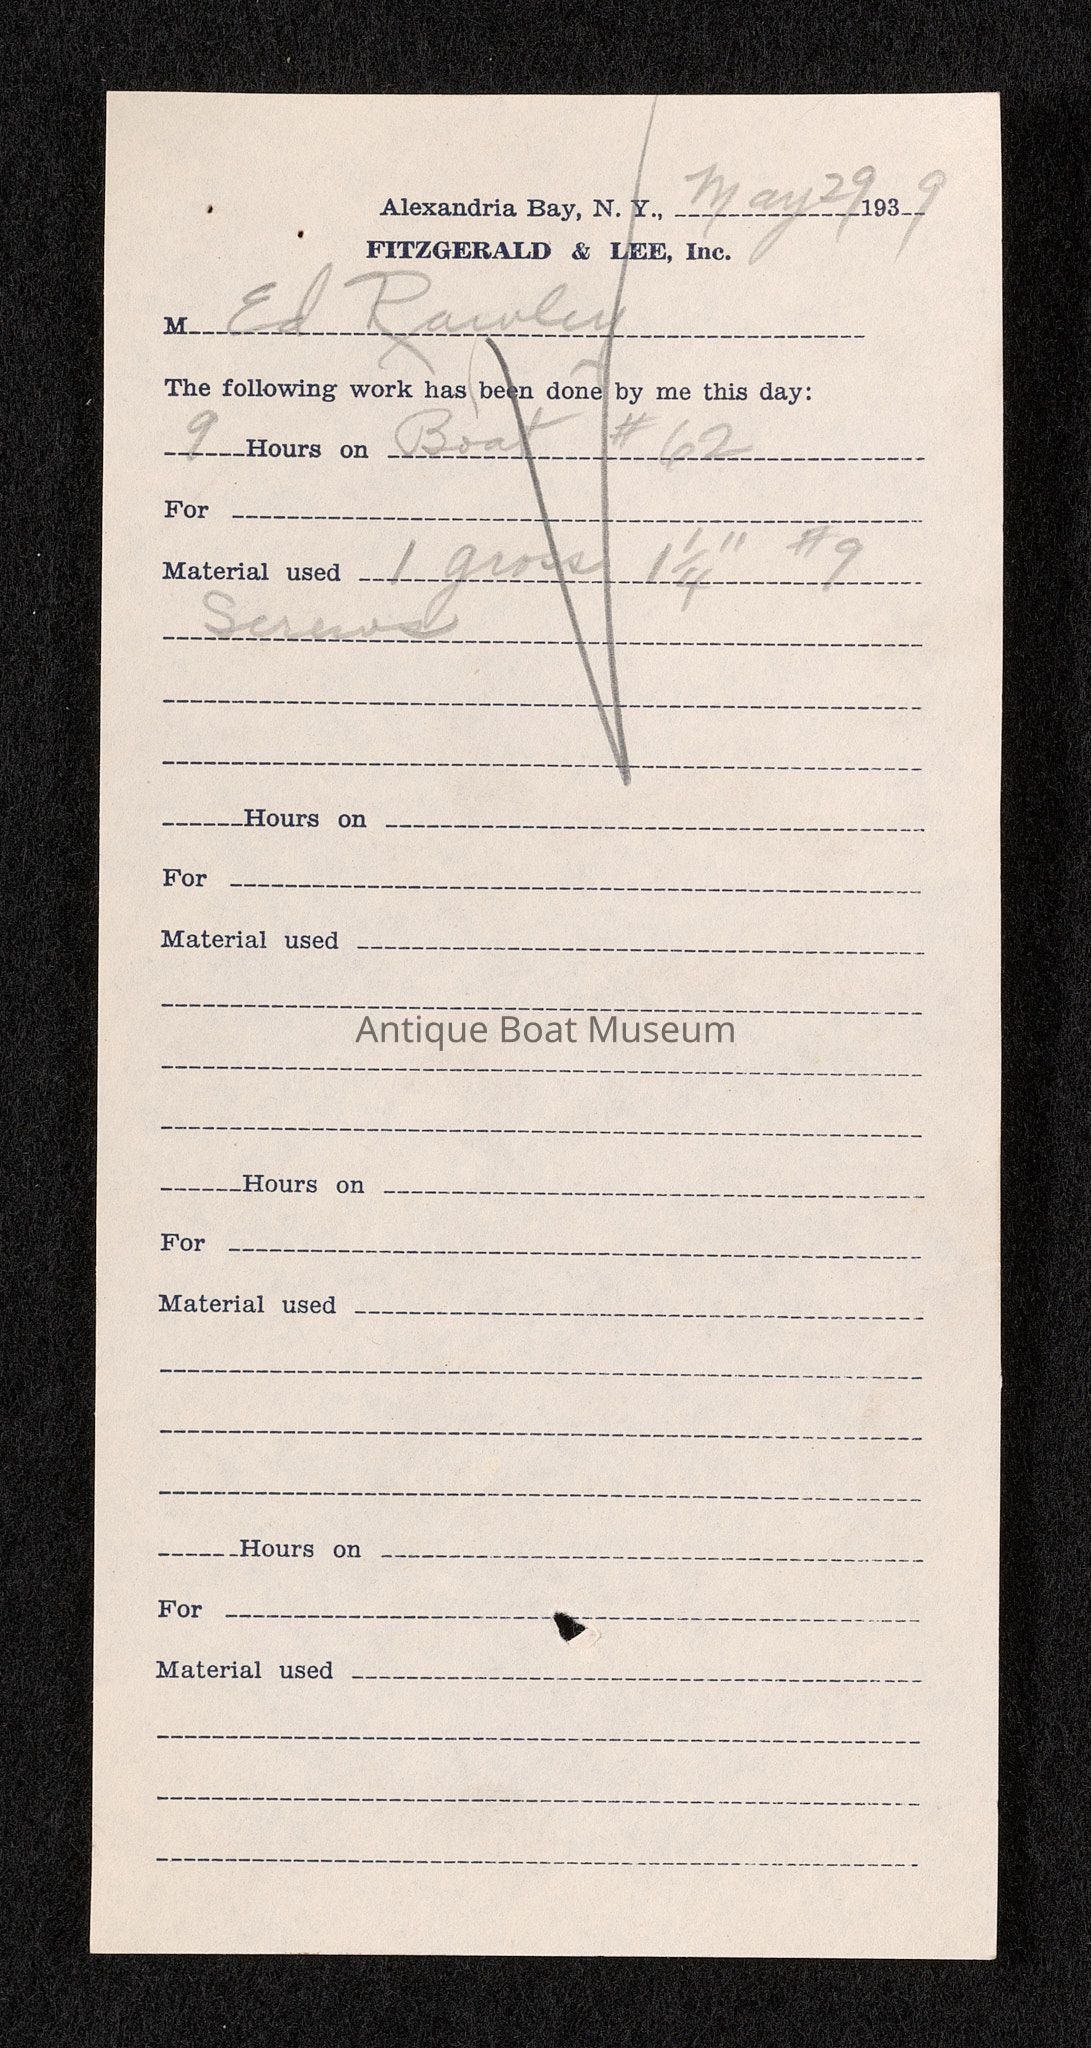 Alexandria Bay, N. Y., May 29 1939
FITZGERALD & LEE, Inc.
M Ed Rawley
The following work has been done by me this day:
9 Hours on Boat #62
For
Material used 1 gross 1 1/4" #9
Screws
Hours on
For
Material used
Antique Boat Museum
Hours on
For
Material used
Hours on
For
Material used